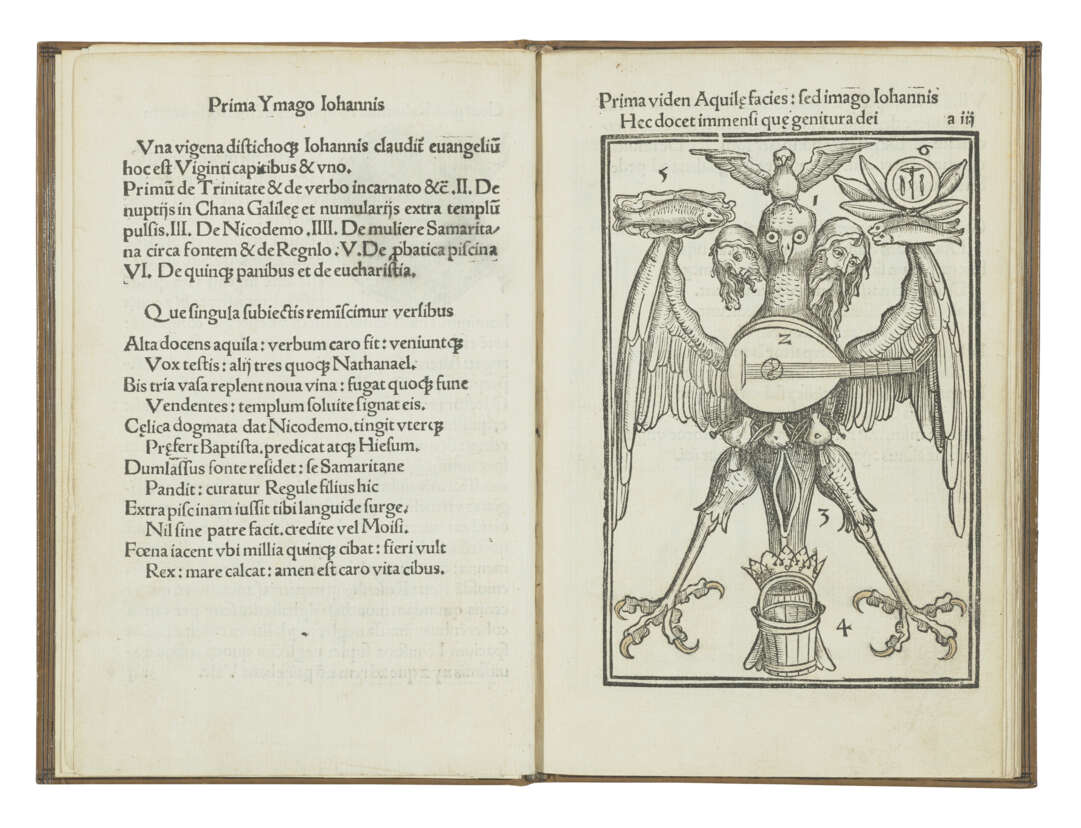 Prima Ymago Iohannis
Vna vigena distichoqꝫ Iohannis claudit̃ euangeliũ
hoc est Viginti capitibus & vno.
Primũ de Trinitate & de verbo incarnato &c̃ .II. De
nuptijs in Chana Galilęe et numularijs extra templũ
pulsis. III. De Nicodemo .IIII. De muliere Samarita⸗
na circa fontem & de Regnlo . V. De ꝓbatica piscina
VI. De quinqꝫ panibus et de eucharistia.
Que singula subiectis remĩscimur versibus
Alta docens aquila : verbum caro fit : veniuntqꝫ
Vox testis : alij tres quoqꝫ Nathanael.
Bis tria vasa replent noua vina : fugat quoqꝫ fune
Vendentes : templum soluite signat eis.
Cęlica dogmata dat Nicodemo. tingit vterqꝫ
Pręfert Baptista. predicat atqꝫ Hiesum.
Dumlassus fonte residet : se Samaritane
Pandit : curatur Regule filius hic
Extra piscinam iussit tibi languide surge.
Nil sine patre facit. credite vel Moisi.
Fœna iacent vbi millia quinqꝫ cibat : fieri vult
Rex : mare calcat : amen est caro vita cibus.
Prima viden Aquilę facies : sed imago Iohannis
Hęc docet immensi quę genitura dei
a iij
5
6
1
2
3
4